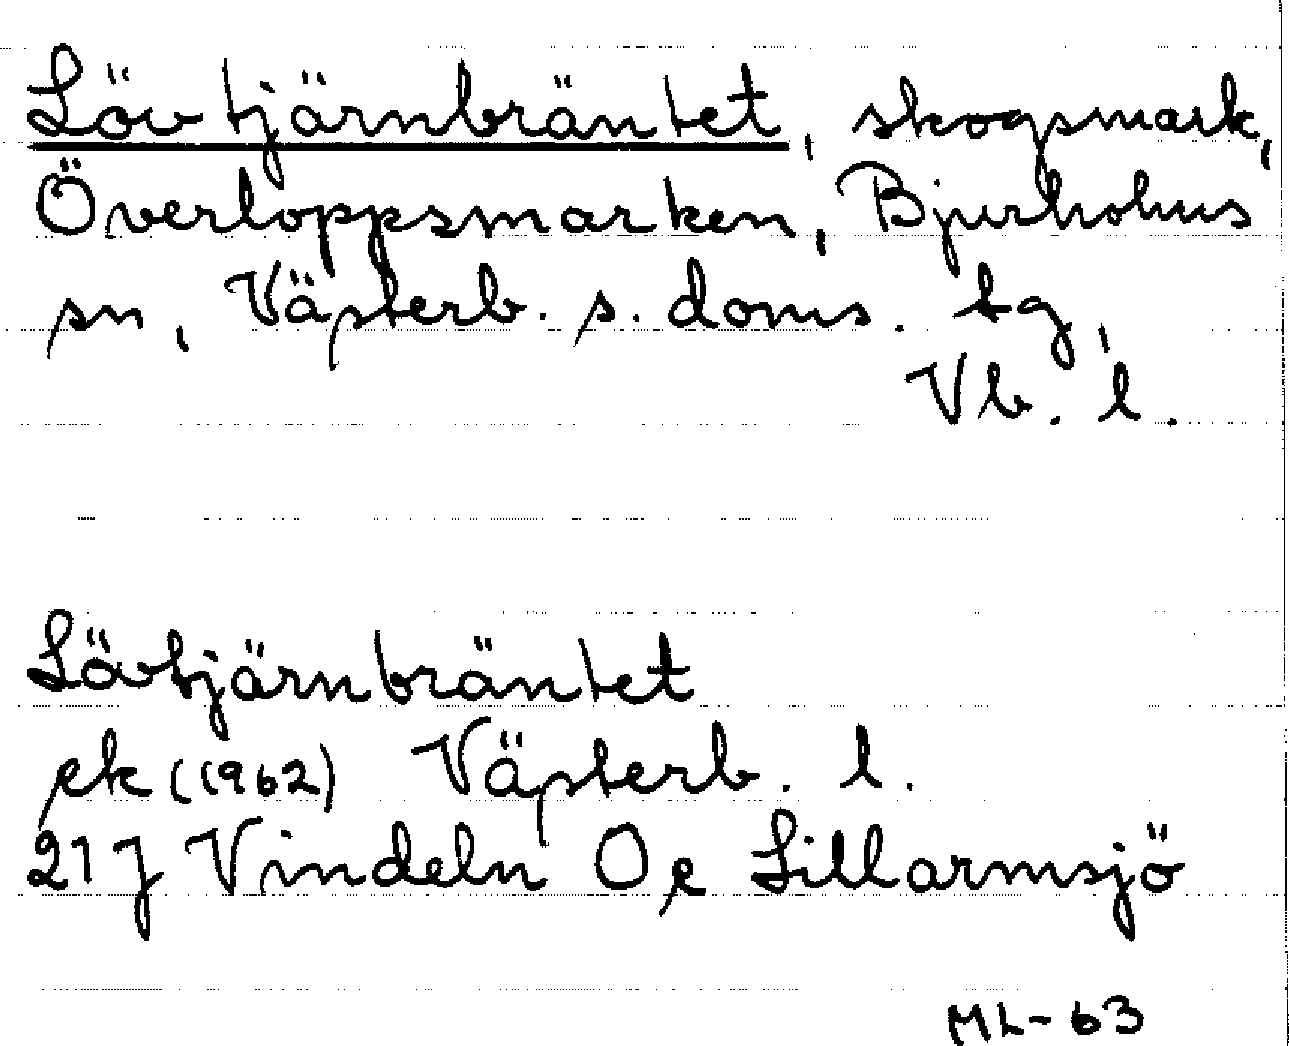 Lövtjärnbräntet, skogsmark,
Överloppsmarken, Bjurholms
sn, Västerb. s. doms. tg,
Vb. l.
Lövtjärnbräntet
ek (1962) Västerb. l.
21J Vindeln Oe Lillarmsjö
ML-63